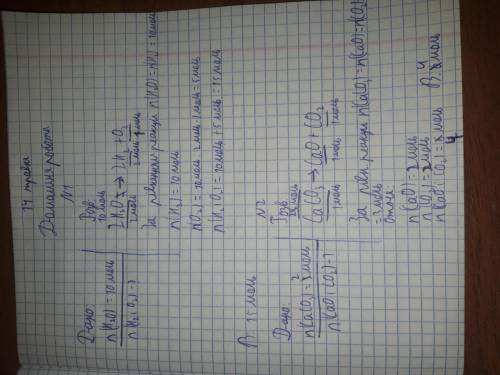 14 травня
Домашня робота
№1
Дано:
n(H₂O) = 10 моль
n(H₂; O₂) - ?
Розв.
10 моль
2H₂O → 2H₂ + O₂
2 моль 2 моль 1 моль
За рівнянням реакції n(H₂O) = n(H₂) = 10 моль
n(H₂) = 10 моль
n(O₂) = 10 моль : 2 моль · 1 моль = 5 моль
n(H₂; O₂) = 10 моль + 5 моль = 15 моль
В: 15 моль
№2
Дано:
n(CaCO₃) = 2 моль
n(CaO; CO₂) - ?
Розв.
CaCO₃ → CaO + CO₂
1 моль 1 моль 1 моль
За рівн. реакції n(CaCO₃) = n(CaO) = n(CO₂)
n(CaO) = 2 моль
n(CO₂) = 2 моль
n(CaO; CO₂) = 4 моль
В: 4 моль